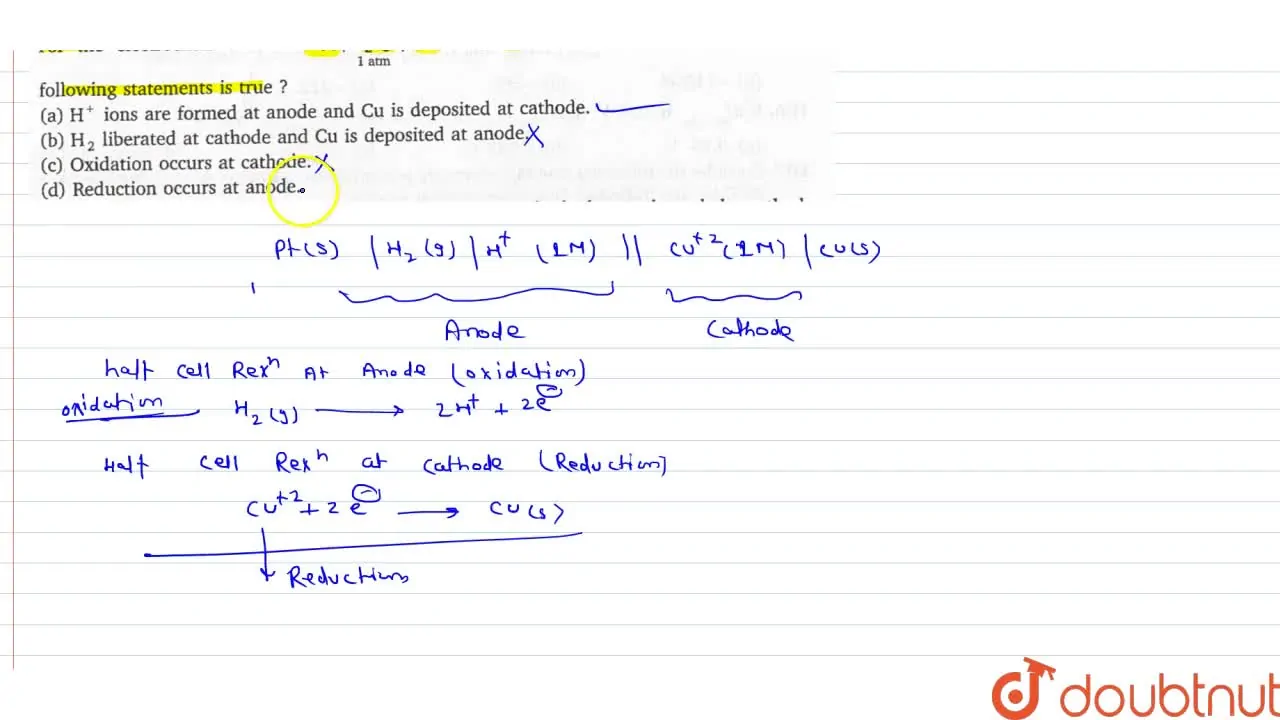 1 atm
following statements is true ?
(a) H⁺ ions are formed at anode and Cu is deposited at cathode.
(b) H₂ liberated at cathode and Cu is deposited at anode.
(c) Oxidation occurs at cathode.
(d) Reduction occurs at anode.
Pt(s) | H₂ (g) | H⁺ (1M) || Cu⁺² (1M) | Cu(s)
Anode Cathode
half cell Rexⁿ At Anode (oxidation)
oxidation H₂(g) → 2H⁺ + 2e⁻
Half cell Rexⁿ at cathode (Reduction)
Cu⁺² + 2e⁻ → Cu(s)
Reduction
doubtnut